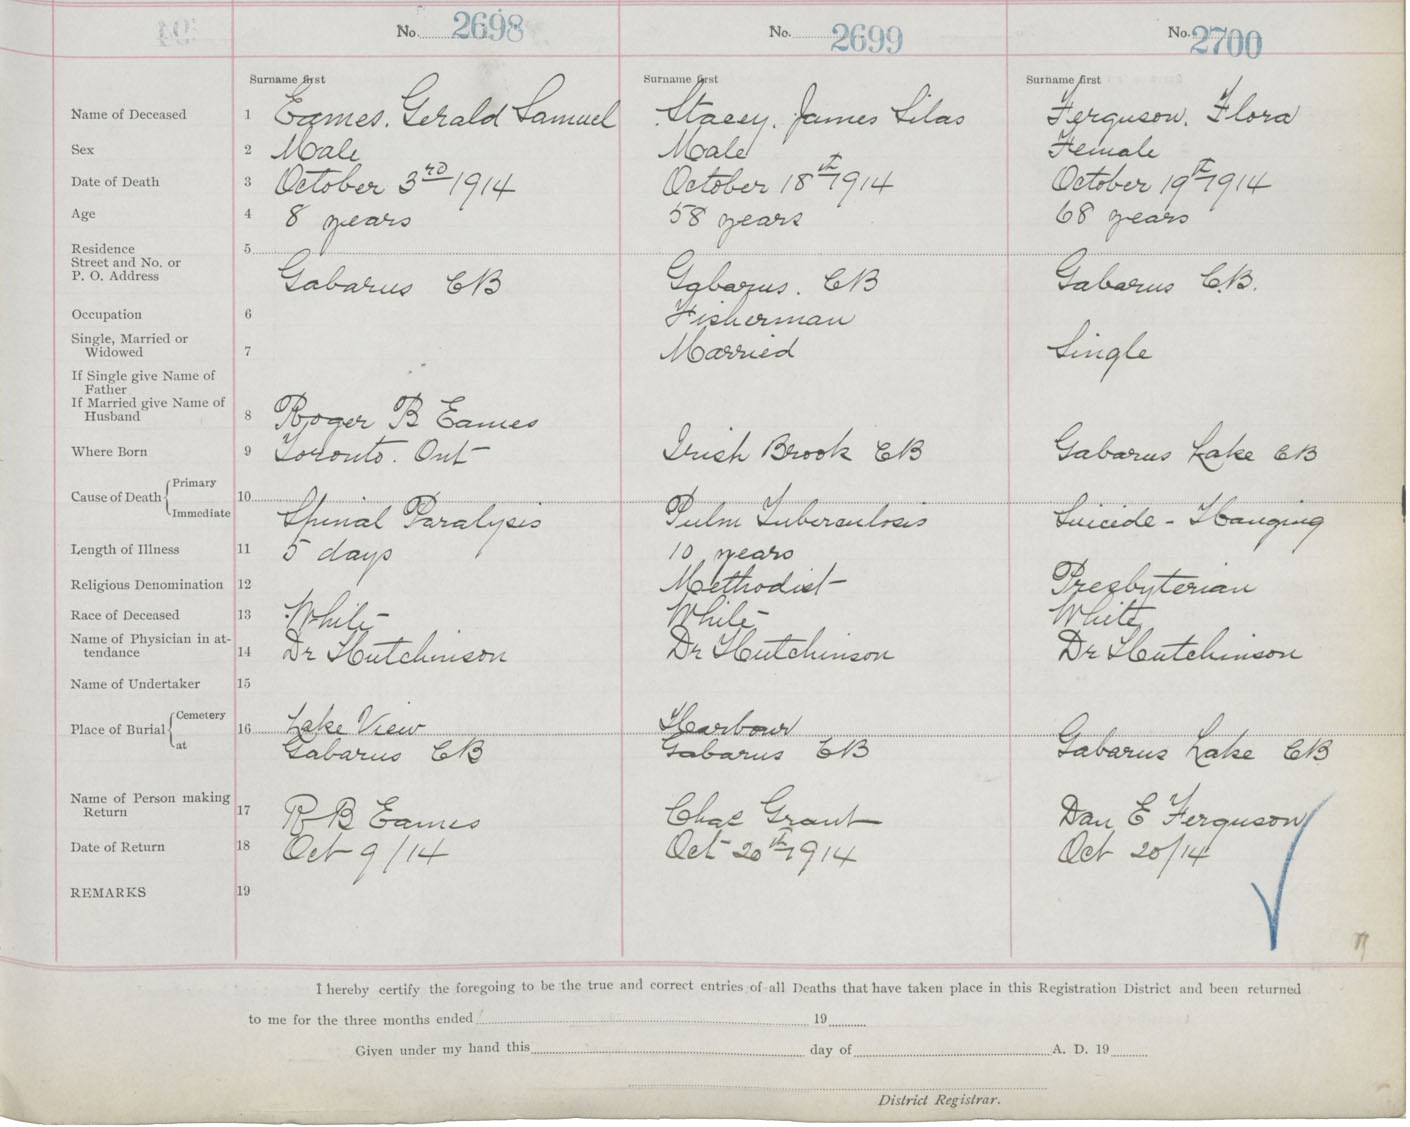 No. 2698 No. 2699 No. 2700
Surname first Surname first Surname first
Name of Deceased 1 Eames. Gerald Samuel Stacey. James Silas Ferguson. Flora
Sex 2 Male Male Female
Date of Death 3 October 3rd 1914 October 18th 1914 October 19th 1914
Age 4 8 years 58 years 68 years
Residence 5
Street and No. or
P. O. Address Gabarus CB Gabarus. CB Gabarus C.B.
Occupation 6 Fisherman
Single, Married or
Widowed 7 Married Single
If Single give Name of
Father
If Married give Name of
Husband 8 Roger B Eames
Where Born 9 Toronto. Ont Irish Brook CB Gabarus Lake CB
Cause of Death { Primary
10
Immediate Spinal Paralysis Pulm Tuberculosis Suicide - Hanging
Length of Illness 11 5 days 10 years
Religious Denomination 12 Methodist Presbyterian
Race of Deceased 13 White White White
Name of Physician in at-
tendance 14 Dr Hutchinson Dr Hutchinson Dr Hutchinson
Name of Undertaker 15
Place of Burial { Cemetery 16 Lake View Harbour
at Gabarus CB Gabarus CB Gabarus Lake CB
Name of Person making
Return 17 R B Eames Chas Grant Dan E Ferguson
Date of Return 18 Oct 9/14 Oct 20th 1914 Oct 20/14
REMARKS 19
I hereby certify the foregoing to be the true and correct entries of all Deaths that have taken place in this Registration District and been returned
to me for the three months ended 19
Given under my hand this day of A. D. 19
District Registrar.